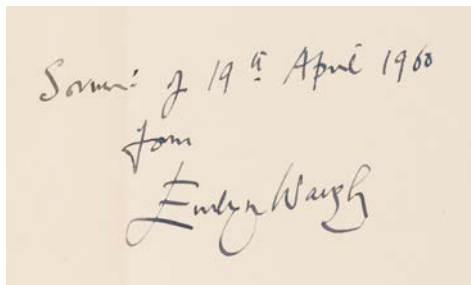 Souvenir of 19th April 1960
from
Evelyn Waugh